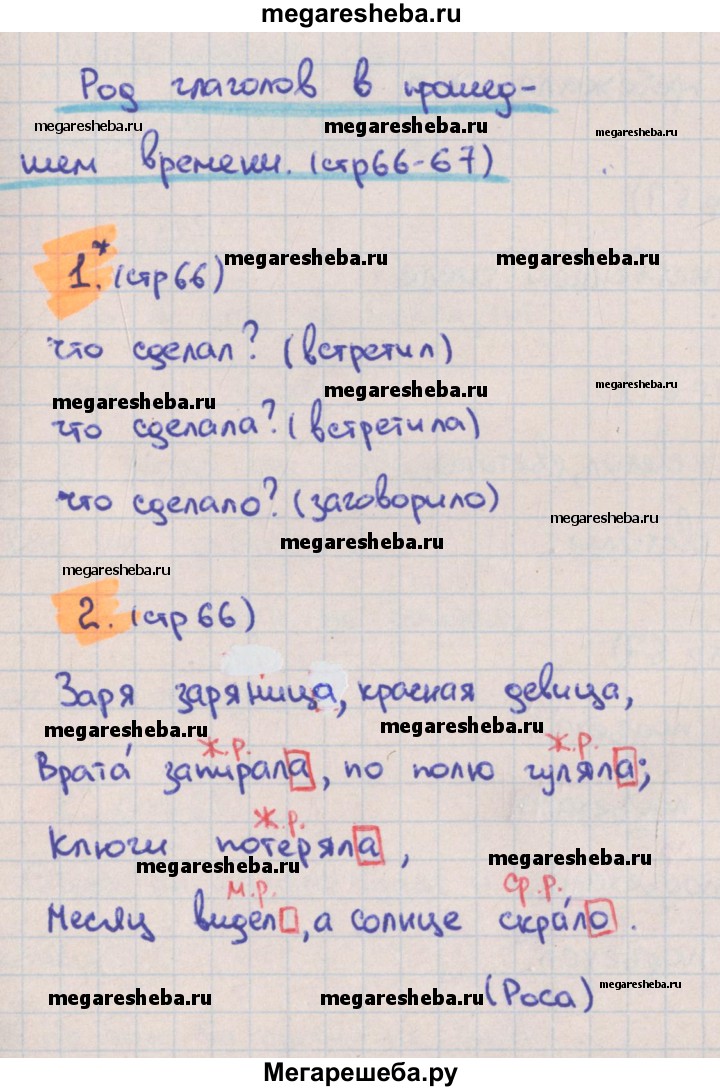 megaresheba.ru
Род глаголов в прошед-
megaresheba.ru megaresheba.ru megaresheba.ru
шем времени. (стр66-67)
1.* (стр66) megaresheba.ru
что сделал? (встретил)
megaresheba.ru megaresheba.ru megaresheba.ru
что сделала? (встретила)
что сделало? (заговорило)
megaresheba.ru
megaresheba.ru
megaresheba.ru
2. (стр66)
Заря заряница, красная девица,
megaresheba.ru megaresheba.ru
ж.р. ж.р.
Врата́ запирала, по полю гуляла;
ж.р.
Ключи потеряла,
megaresheba.ru megaresheba.ru
м.р. ср.р.
Месяц видел, а солнце скра́ло.
(Роса)
megaresheba.ru megaresheba.ru megaresheba.ru
Мегарешеба.ру